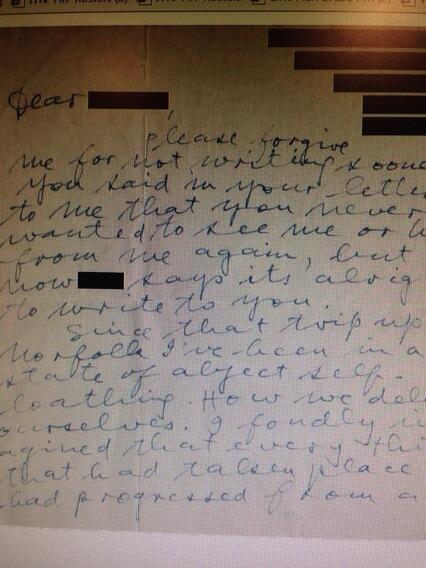 Dear ,
please forgive
me for not writing soone
you said in your lette
to me that you never
wanted to see me or h
from me again, but
now says its alrig
to write to you.
Since that trip up
Norfolk I've been in a
state of abject self-
loathing. How we del
ourselves. I fondly i
agined that every thi
that had taken place
had progressed from a